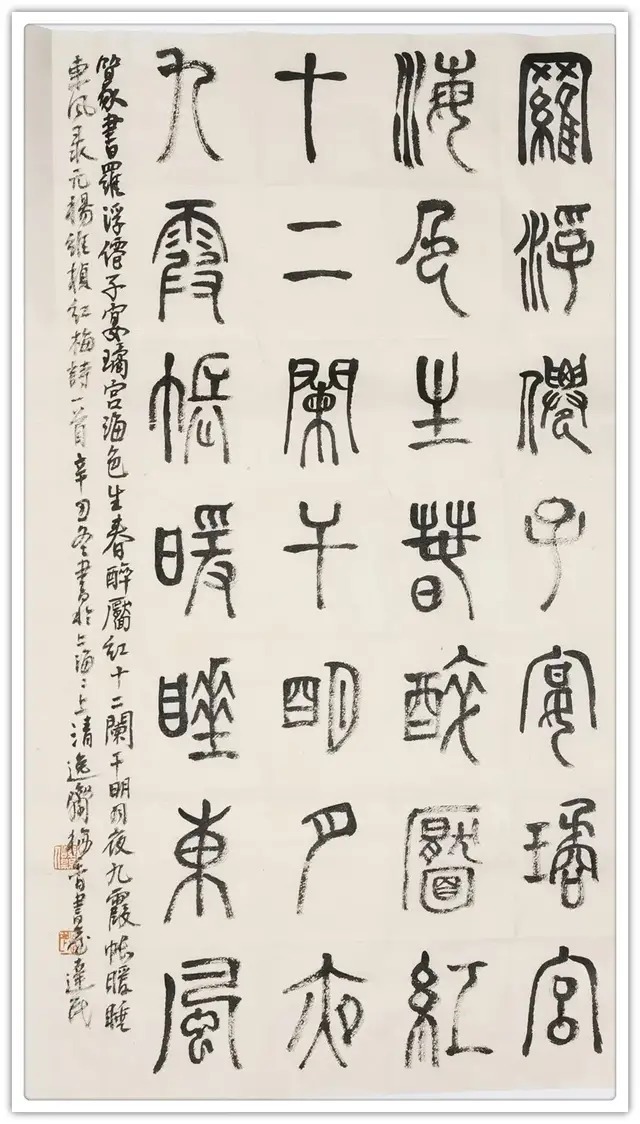 羅浮僊子宴璚宮
海色生春醉靨紅
十二闌干明月夜
九霞帳暖睡東風
篆書羅浮僊子宴璚宮海色生春醉靨紅十二闌干明月夜九霞帳暖睡
東風录元楊維楨紅梅詩一首辛丑冬書於上海上清逸香書達民